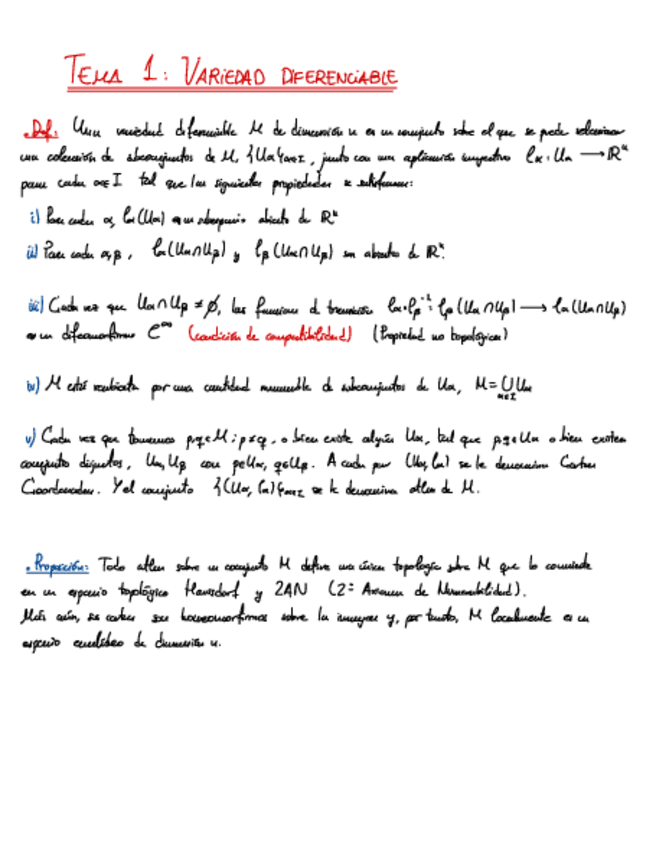 TEMA 1: VARIEDAD DIFERENCIABLE
• Def: Una variedad diferenciable M de dimensión n es un conjunto sobre el que se puede seleccionar
una colección de subconjuntos de M, {Uα}α∈I, junto con una aplicación inyectiva φα: Uα → ℝⁿ
para cada α∈I tal que las siguientes propiedades se satisfacen:
i) Para cada α, φα(Uα) es un abierto de ℝⁿ
ii) Para cada α,β, φα(Uα∩Uβ) y φβ(Uα∩Uβ) son abiertos de ℝⁿ.
iii) Cada vez que Uα∩Uβ ≠ ∅, las funciones d transición φα∘φβ⁻¹: φβ(Uα∩Uβ) → φα(Uα∩Uβ)
es un difeomorfismo C^∞ (condición de compatibilidad) (Propiedad no topológica)
iv) M está recubierta por una cantidad numerable de subconjuntos de Uα, M = ⋃α∈I Uα
v) Cada vez que tomemos p,q∈M ; p≠q, o bien existe algún Uα, tal que p,q∈Uα o bien existen
conjunto disjuntos, Uα, Uβ con p∈Uα, q∈Uβ. A cada par (Uα, φα) se le denomina Cartas
Coordenadas. Y el conjunto {(Uα, φα)}α∈I se le denomina atlas de M.
• Proposición: Todo atlas sobre un conjunto M define una única topología sobre M que lo convierte
en un espacio topológico Hausdorf y 2AN (2º Axioma de Numerabilidad).
Más aún, las cartas son homeomorfismos sobre la imagen y, por tanto, M localmente es un
espacio euclídeo de dimensión n.